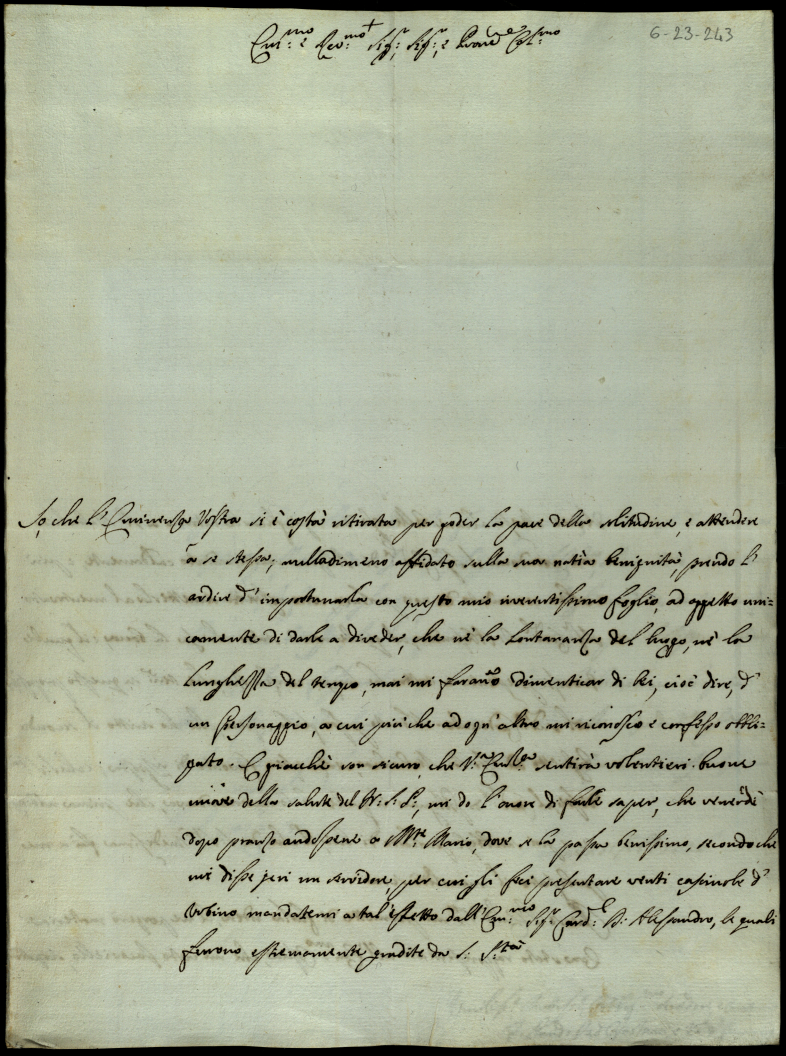 6-23-243
Em:mo e Rev:mo Sig:r Sig:r e Prone Col:mo
So, che l'Eminenza Vostra si è costà ritirata per goder la pace della solitudine, e attendere
a se stessa; nulladimeno affidato sulla sua natìa benignità, prendo l'
ardire d'importunarla con questo mio riverentissimo foglio, ad oggetto uni=
camente di darle a diveder, che nè la lontananza del luogo, nè la
lunghezza del tempo, mai mi faranno dimenticar di Lei, cioè dire, d'
un Personaggio, a cui più che ad ogn'altro mi riconosco e confesso obbli=
gato. E giacchè son sicuro, che V:ra Em:za sentirà volentieri buone
nuove della salute del N: S: P:, mi do l'onore di farle saper, che venerdì
dopo pranzo andossene a M:te Mario, dove se la passa benissimo, secondo che
mi disse jeri un servidore, per cui gli feci presentare venti casciuole d'
Urbino mandatemi a tal'effetto dall'Em:mo Sig:r Card:l D: Alessandro, le quali
furono estremamente gradite da S: S:tà